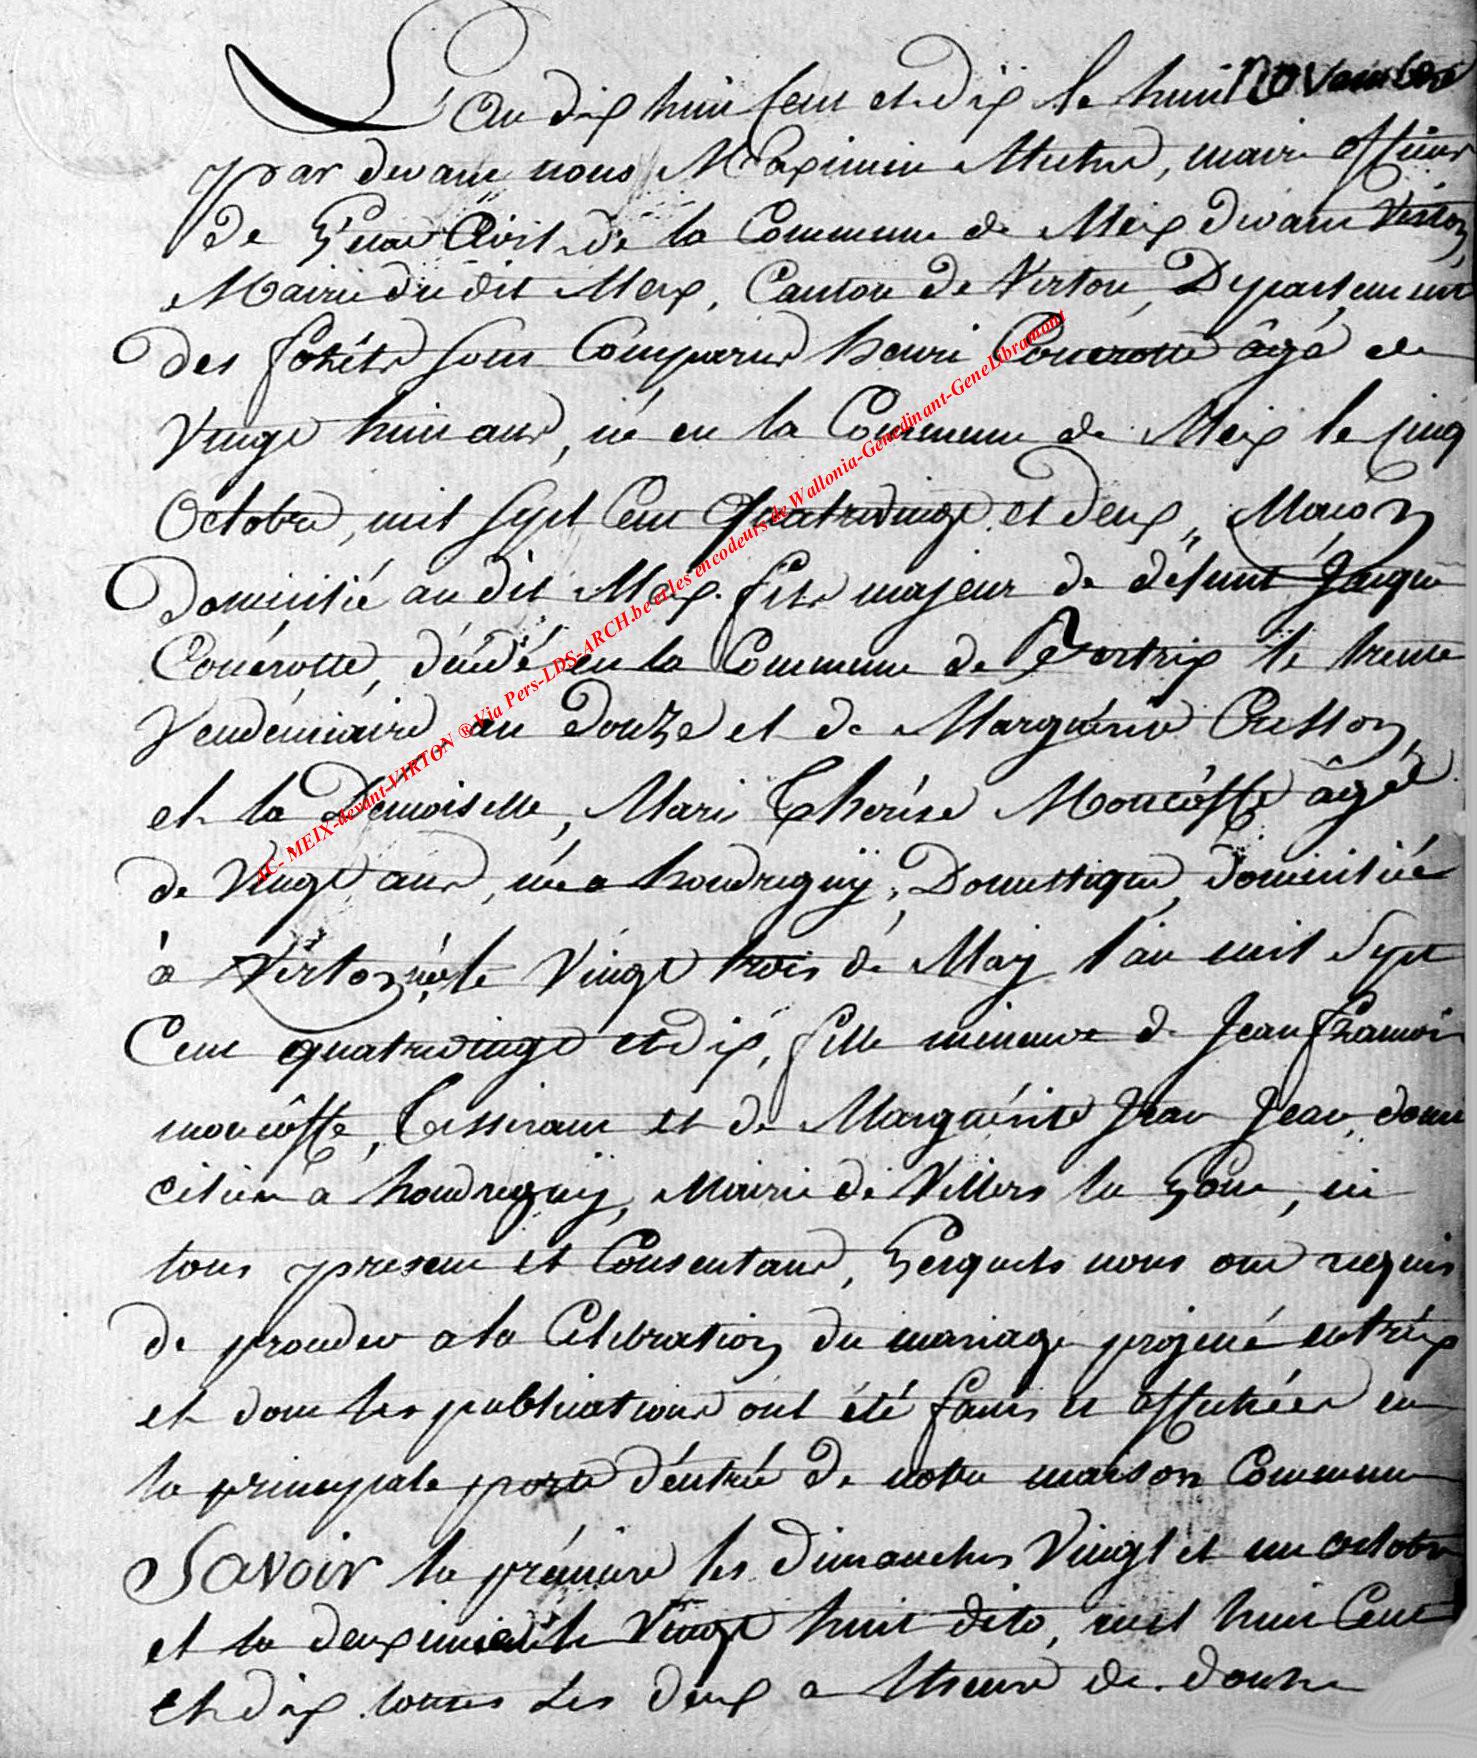 L'An dix huit Cent et dix le huit Novembre
par devant nous Maximin Muthé, maire officier
de L'état Civil de la Commune de Meix devant Virton,
Mairie du dit Meix, Canton de Virton, Département
des forêts sont Comparus henri Couërotte âgé de
Vingt huit ans, né en la Commune de Meix le cinq
Octobre, mil Sept Cent quatrevingt et deux, Macon
Domicilié au dit Meix. fils majeur de défunt Jacque
Couërotte, décédé en la Commune de le trente
Vendémiaire an Douze et de Marguérite Cresson,
et la Demoiselle, Marie Thérése Moucôffe âgée
de Vingt ans, née a houdrigny, Domestique, domiciliée
à Virton, née le Vingt trois de May l'an mil Sept
Cent quatrevingt et dix, fille mineure de Jean françois
moucôffe, Tisserant et de Marguérite Jean Jean, domi
ciliés a houdrigny, Mairie de Villers la Loue, ici
tous present et Consentant, Lesquels nous ont requis
de proceder a la Celebration du mariage projeté entre eux
et dont les publications ont été faites et affichées en
la principale porte d'éntrée de notre maison Commune
Savoir la prémiere les dimanches Vingt et un octobre
et la deuxieme le Vingt huit dito, mil huit Cent
et dix toutes Les deux a l'heure de douze
AC- MEIX-devant-VIRTON ® Via Pers-LDS-ARCH.be et les encodeurs de Wallonia-Genedinant-GeneLibramont